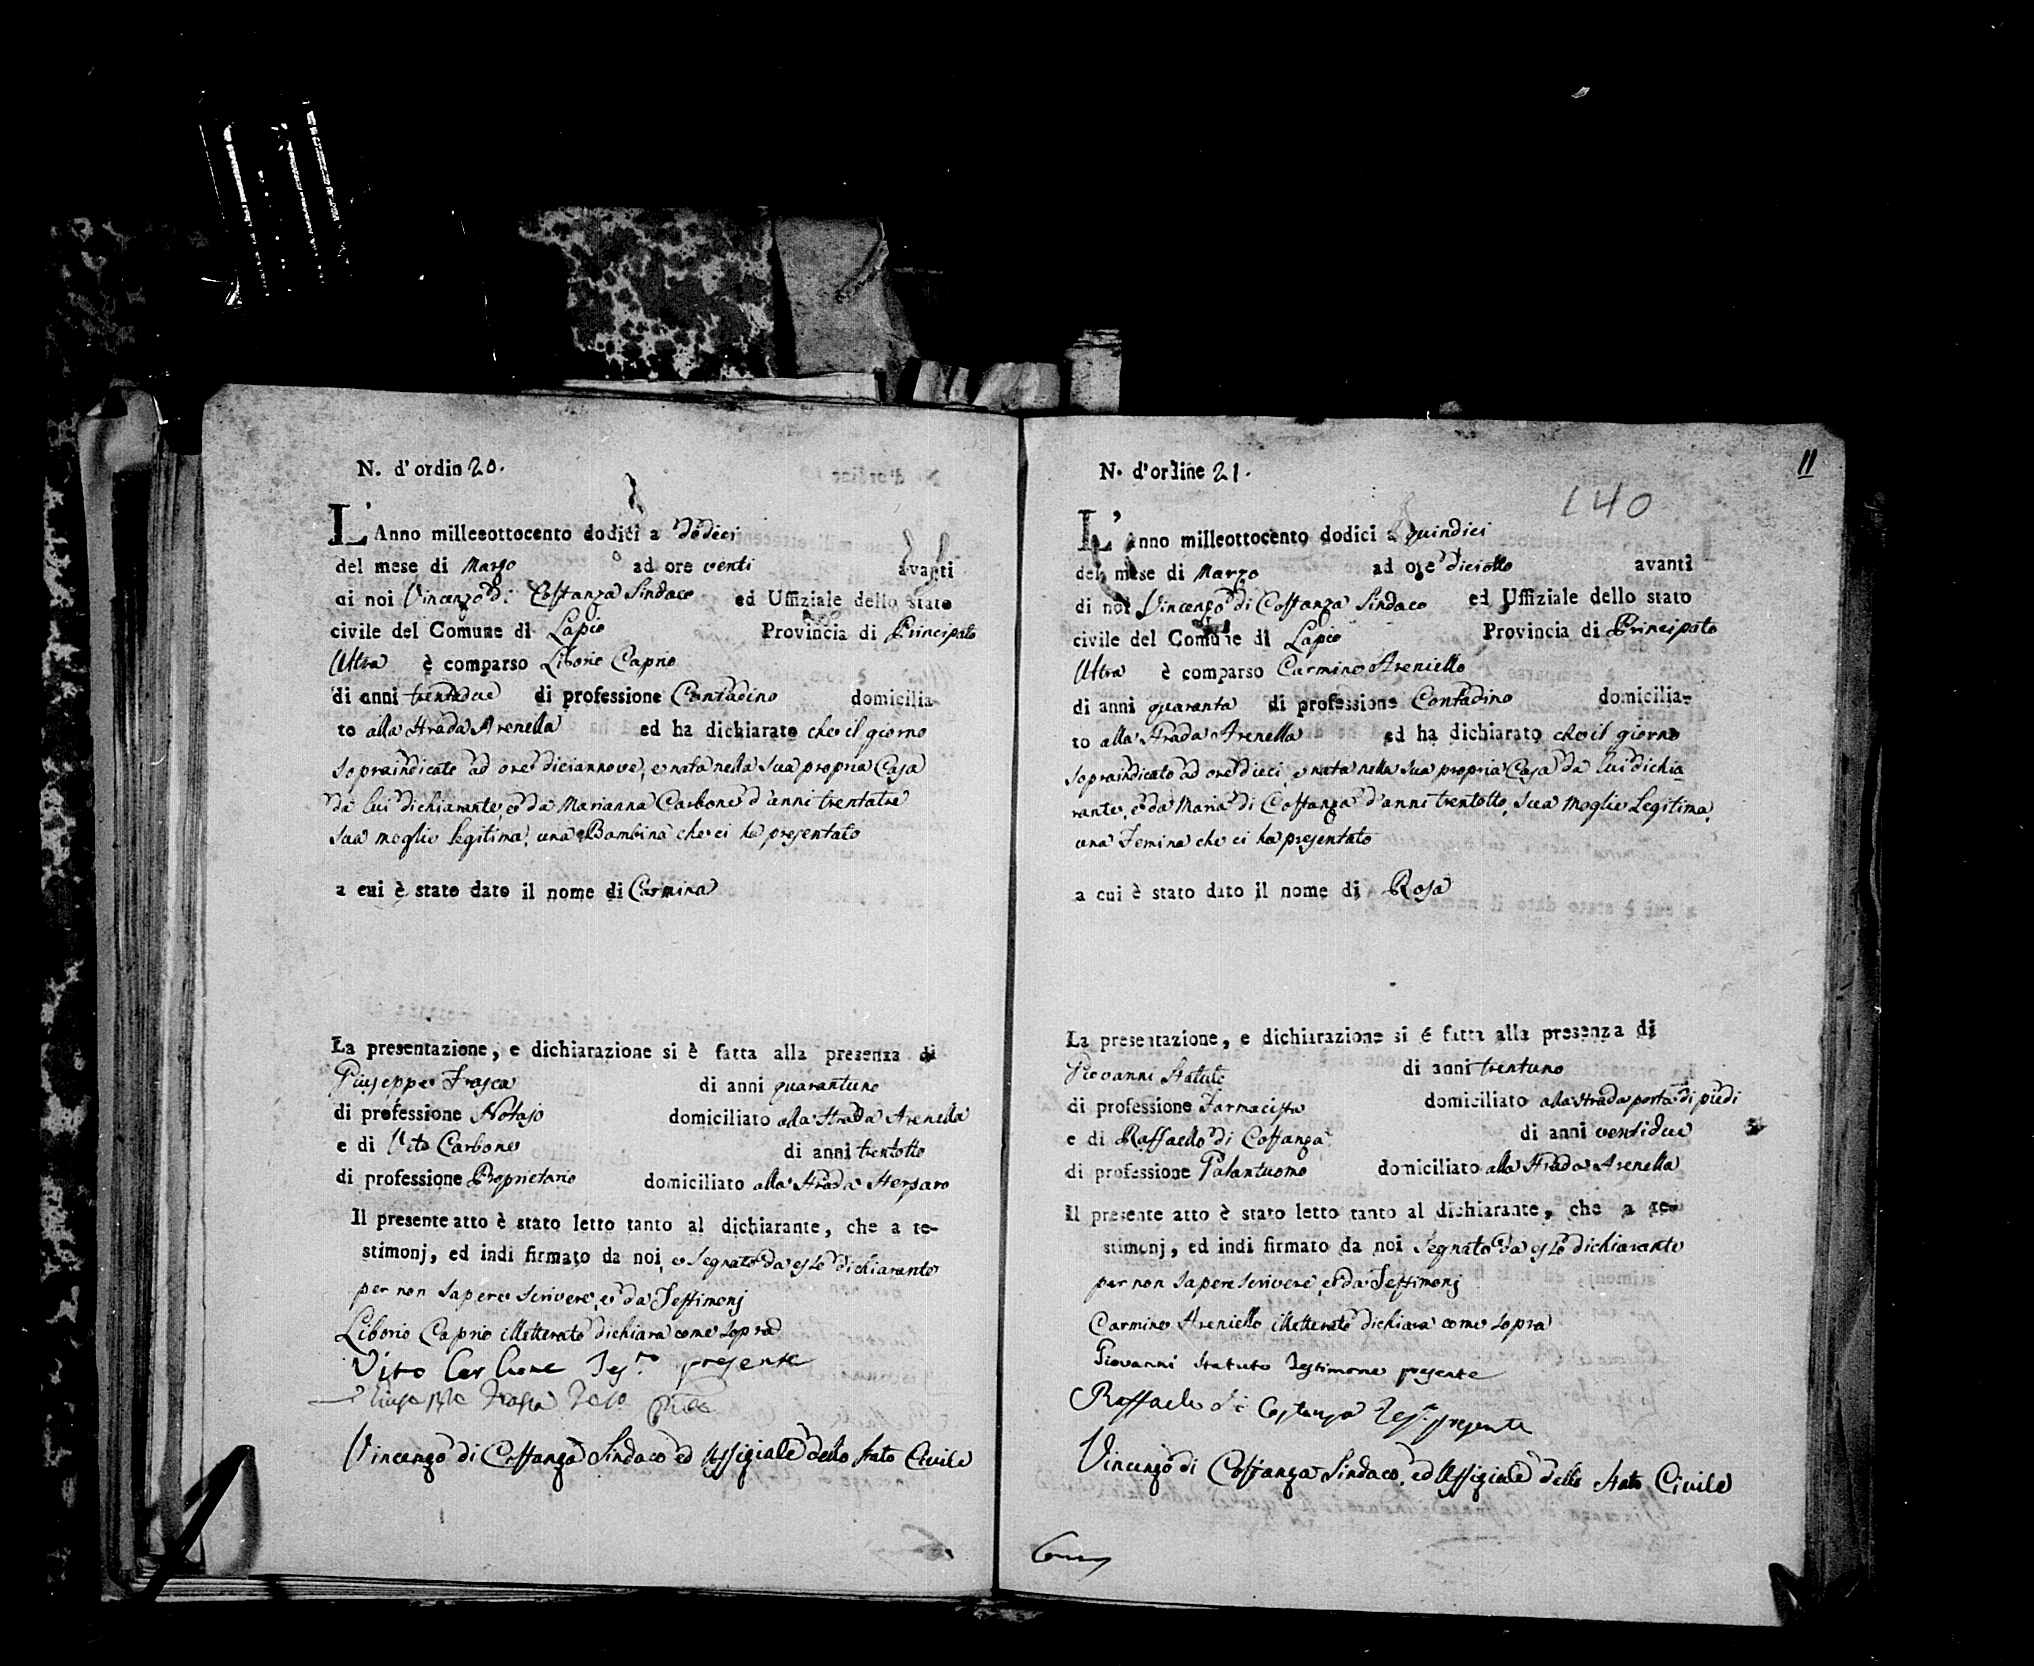 N. d'ordin 20.
L'Anno milleeottocento dodici a dodeci
del mese di Marzo ad ore venti avanti
di noi Vincenzo di Costanza Sindaco ed Uffiziale dello stato
civile del Comune di Lapio Provincia di Principato
Ultra è comparso Liborio Caprio
di anni trentadue di professione Contadino domicilia-
to alla Strada Arenella ed ha dichiarato che il giorno
sopraindicato ad ore diciannove, e nata nella sua propria Casa
da lui dichiarante, e da Marianna Carbone d'anni trentatre
sua moglie legitima, una Bambina che ci ha presentato
a cui è stato dato il nome di Carmina
La presentazione, e dichiarazione si è fatta alla presenza di
Giuseppe Frasca di anni quarantuno
di professione Notajo domiciliato alla Strada Arenella
e di Vito Carbone di anni trentotto
di professione Proprietario domiciliato alla Strada
Il presente atto è stato letto tanto al dichiarante, che a te-
stimonj, ed indi firmato da noi, e segnato da esso dichiarante
per non sapere scrivere, e da Testimonj
Liborio Caprio illetterato dichiara come sopra
Vito Carbone Tes.no presente
Giuseppe Frasca
Vincenzo di Costanza Sindaco ed Uffiziale dello Stato Civile
N. d'ordine 21.
11
140
L'Anno milleottocento dodici a quindici
del mese di Marzo ad ore diciotto avanti
di noi Vincenzo di Costanza Sindaco ed Uffiziale dello stato
civile del Comune di Lapio Provincia di Principato
Ultra è comparso Carmine Areniello
di anni quaranta di professione Contadino domicilia-
to alla Strada Arenella ed ha dichiarato che il giorno
sopraindicato ad ore dieci, e nata nella sua propria Casa da lui dichia
rante, e da Maria di Costanza d'anni trentotto, sua moglie legitima,
una Femina che ci ha presentato
a cui è stato dato il nome di Rosa
La presentazione, e dichiarazione si é fatta alla presenza di
Giovanni Statuto di anni trentuno
di professione Farmacista domiciliato alla strada porta di piedi
e di Raffaello di Costanza di anni ventidue
di professione Galantuomo domiciliato alla Strada Arenella
Il presente atto è stato letto tanto al dichiarante, che a te-
stimonj, ed indi firmato da noi segnato da esso dichiarante
per non sapere scrivere, e da Testimonj
Carmine Areniello illetterato dichiara come sopra
Giovanni Statuto Testimone presente
Raffaele di Costanza presente
Vincenzo di Costanza Sindaco, ed Uffiziale dello Stato Civile